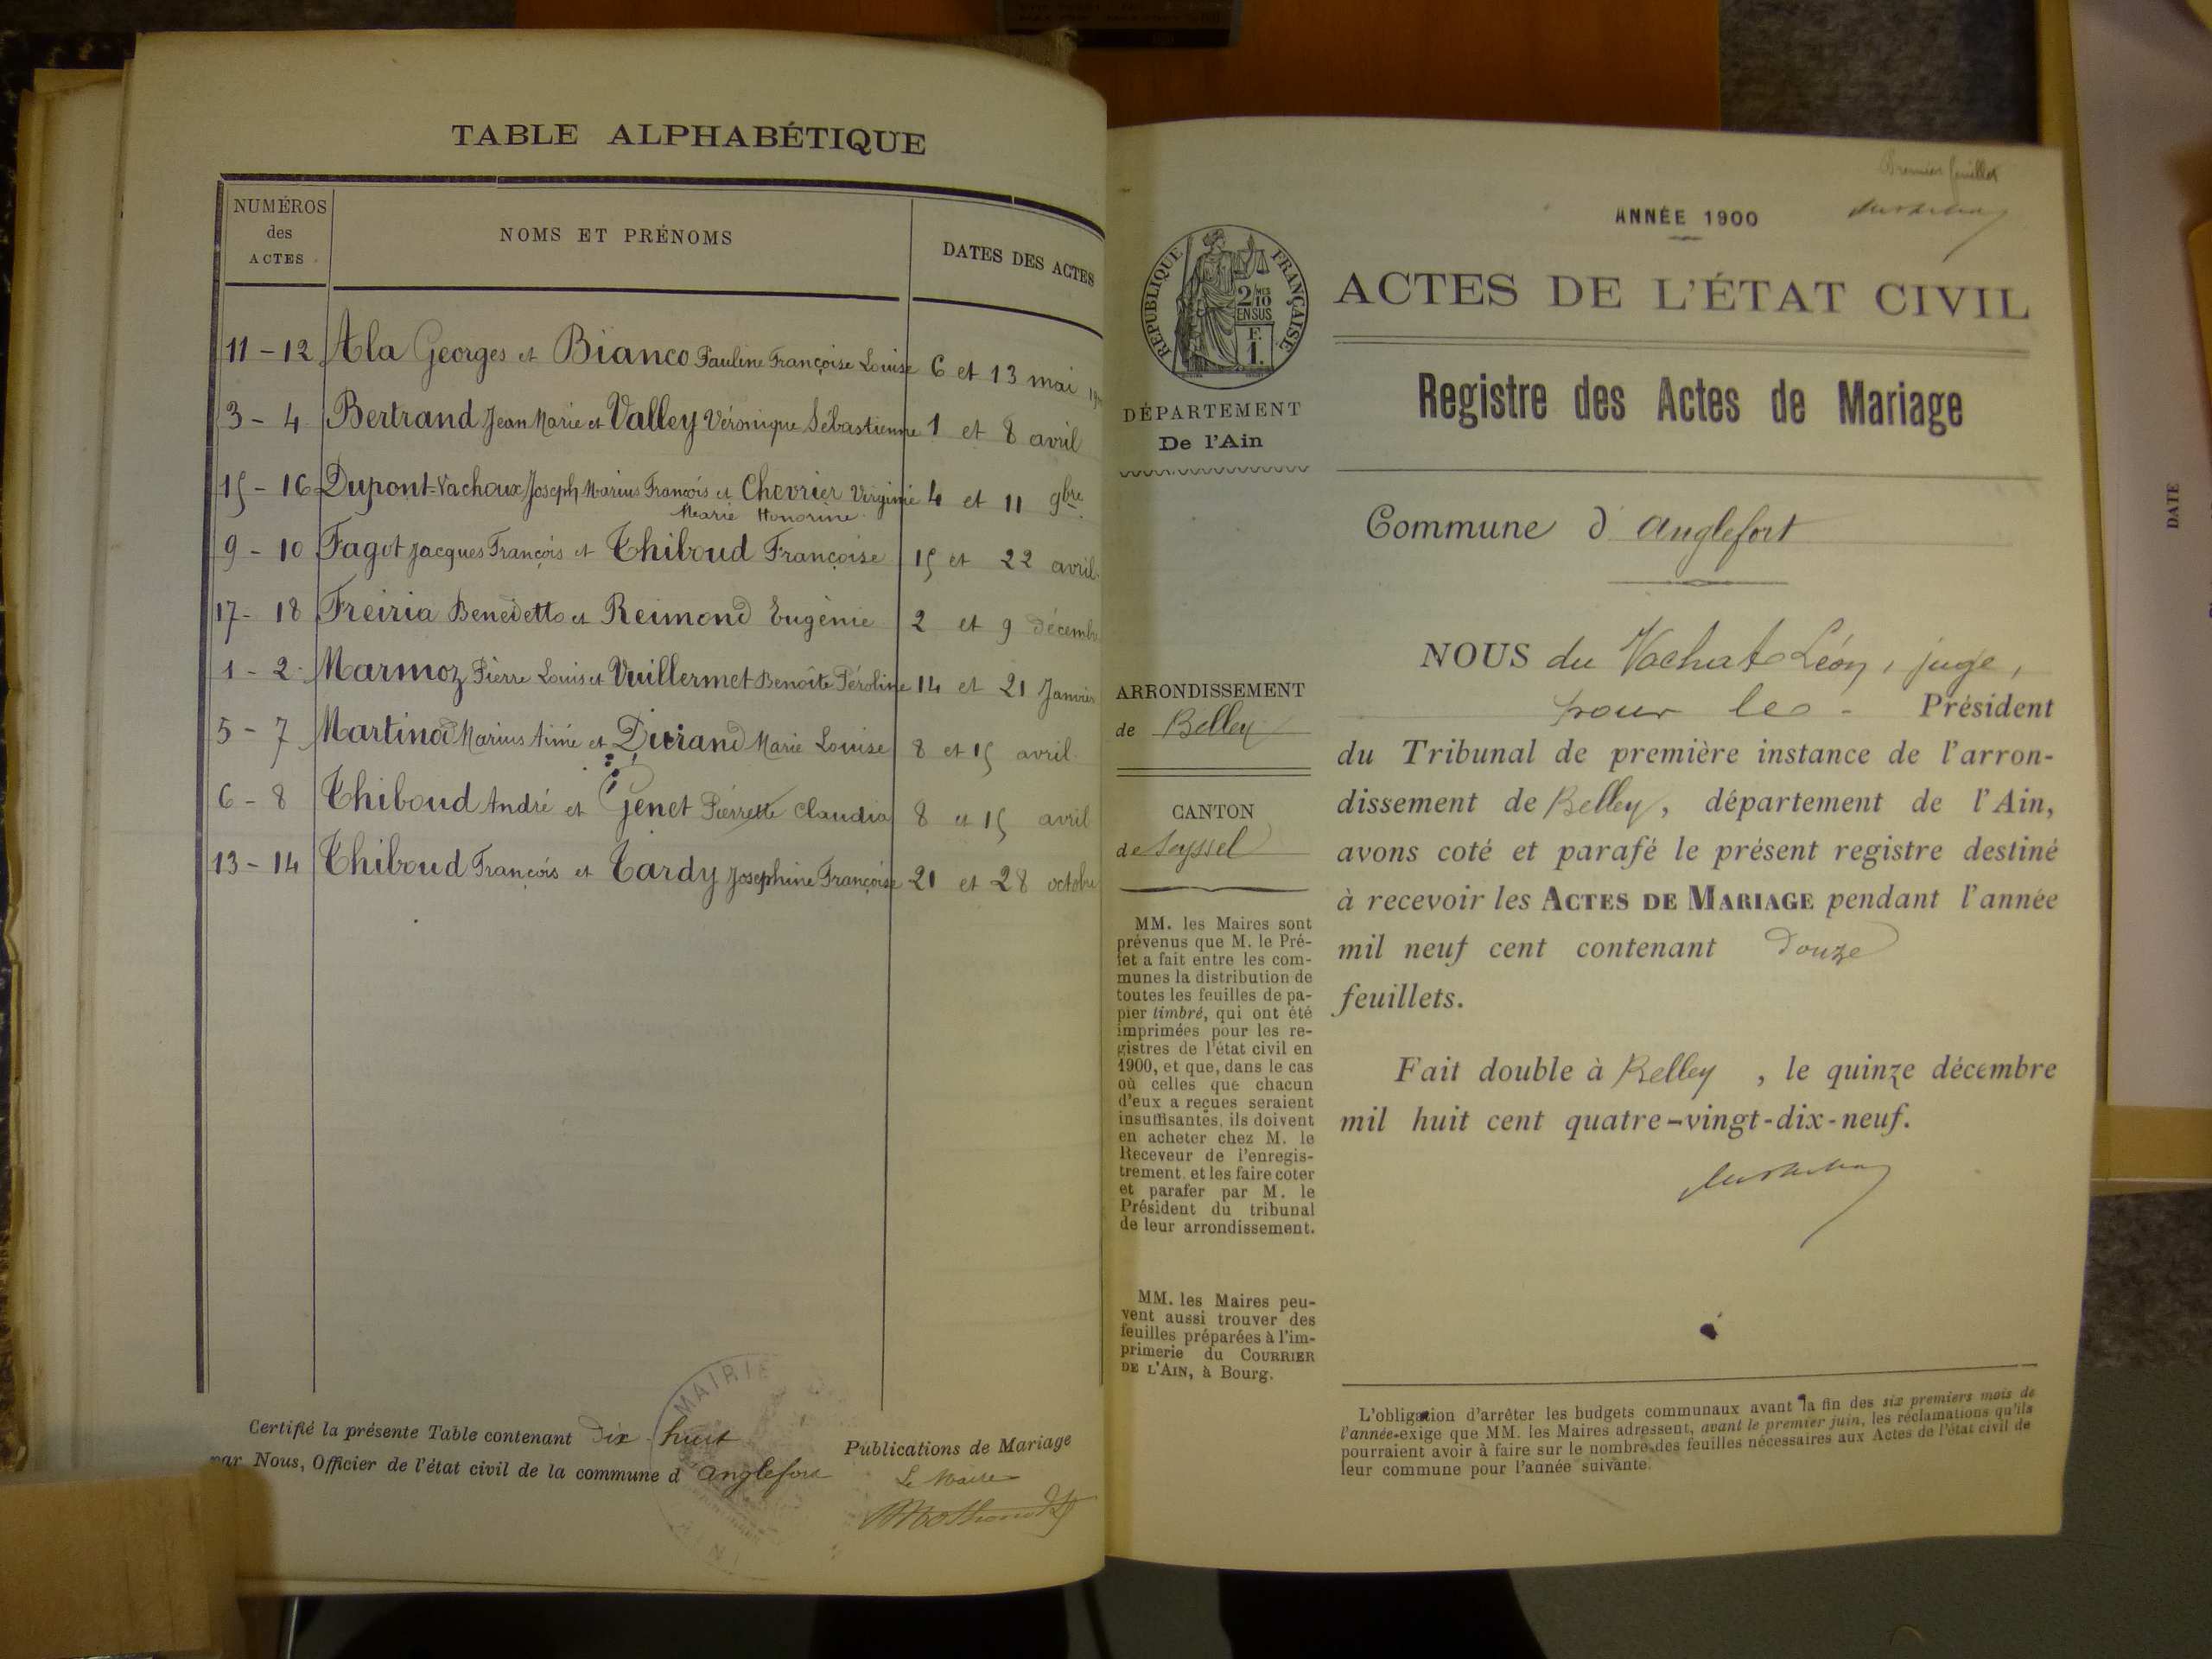 TABLE ALPHABÉTIQUE
NUMÉROS
des
ACTES
NOMS ET PRÉNOMS
DATES DES ACTES
11 - 12 Ala Georges et Bianco Pauline Françoise Louise 6 et 13 mai
3 - 4 Bertrand Jean Marie et Valley Véronique Sébastienne 1 et 8 avril
15 - 16 Dupont-Vachoux Joseph Marius François et Chevrier Virginie 4 et 11 9bre
Marie Honorine
9 - 10 Fagot Jacques François et Thiboud Françoise 15 et 22 avril
17 - 18 Freiria Benedetto et Reimond Eugénie 2 et 9 décembre
1 - 2 Marmoz Pierre Louis et Vuillermet Benoîte Péroline 14 et 21 Janvier
5 - 7 Martinod Marius Aimé et Durand Marie Louise 8 et 15 avril
6 - 8 Thiboud André et Genet Pierrette Claudia 8 et 15 avril
13 - 14 Thiboud François et Tardy Josephine Françoise 21 et 28 octobre
MAIRIE
Certifié la présente Table contenant Dix huit Publications de Mariage
par Nous, Officier de l'état civil de la commune d Anglefort
Le Maire
Premier feuillet
ANNÉE 1900
RÉPUBLIQUE FRANÇAISE
2/10
EN SUS
F.
1.
ACTES DE L'ÉTAT CIVIL
Registre des Actes de Mariage
DÉPARTEMENT
De l'Ain
Commune d'Anglefort
ARRONDISSEMENT
de Belley
CANTON
de Seyssel
MM. les Maires sont
prévenus que M. le Pré-
fet a fait entre les com-
munes la distribution de
toutes les feuilles de pa-
pier timbré, qui ont été
imprimées pour les re-
gistres de l'état civil en
1900, et que, dans le cas
où celles que chacun
d'eux a reçues seraient
insuffisantes, ils doivent
en acheter chez M. le
Receveur de l'enregis-
trement, et les faire coter
et parafer par M. le
Président du tribunal
de leur arrondissement.
MM. les Maires peu-
vent aussi trouver des
feuilles préparées à l'im-
primerie du COURRIER
DE L'AIN, à Bourg.
NOUS du Vachat Léon, juge,
pour le Président
du Tribunal de première instance de l'arron-
dissement de Belley, département de l'Ain,
avons coté et parafé le présent registre destiné
à recevoir les ACTES DE MARIAGE pendant l'année
mil neuf cent contenant Douze
feuillets.
Fait double à Belley, le quinze décembre
mil huit cent quatre-vingt-dix-neuf.
L'obligation d'arrêter les budgets communaux avant la fin des six premiers mois de
l'année exige que MM. les Maires adressent, avant le premier juin, les réclamations qu'ils
pourraient avoir à faire sur le nombre des feuilles nécessaires aux Actes de l'état civil de
leur commune pour l'année suivante.
DATE